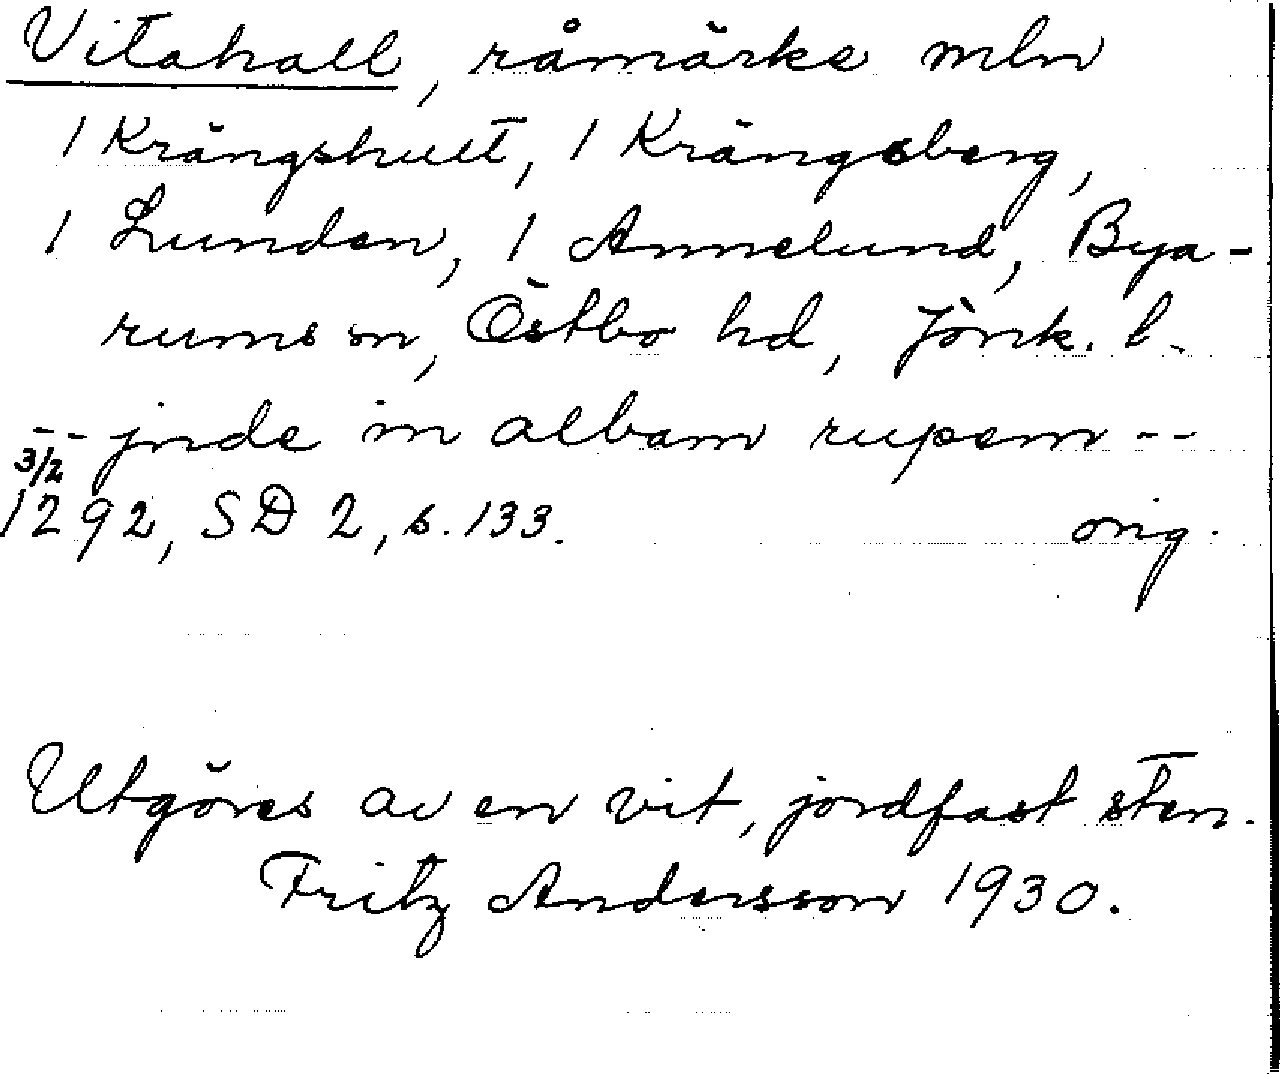 Vitahall, råmärke mln
1 Krängshult, 1 Krängsberg,
1 Lunden, 1 Annelund, Bya-
rums sn, Östbo hd, Jönk. l.
-- jnde in albam rupem --
3/2
1292, SD 2, s. 133. orig.
Utgöres av en vit, jordfast sten.
Fritz Andersson 1930.